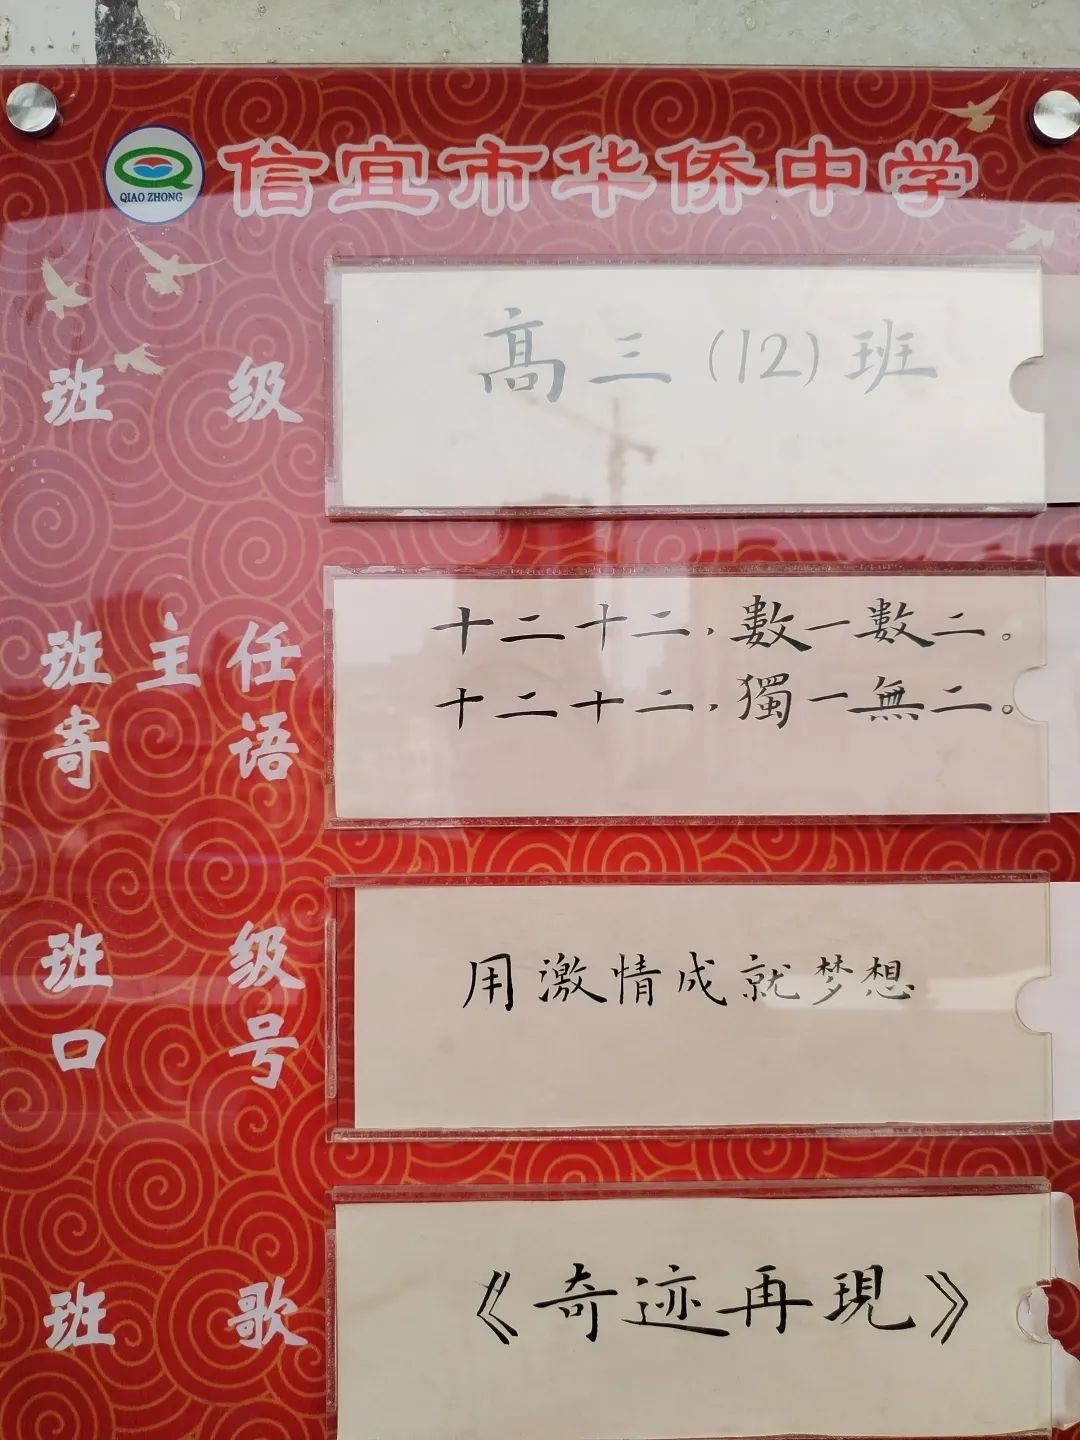 QIAO ZHONG
信宜市华侨中学
班级
高三(12)班
班主任
寄语
十二十二,數一數二。
十二十二,獨一無二。
班级
口号
用激情成就梦想
班歌
《奇迹再現》